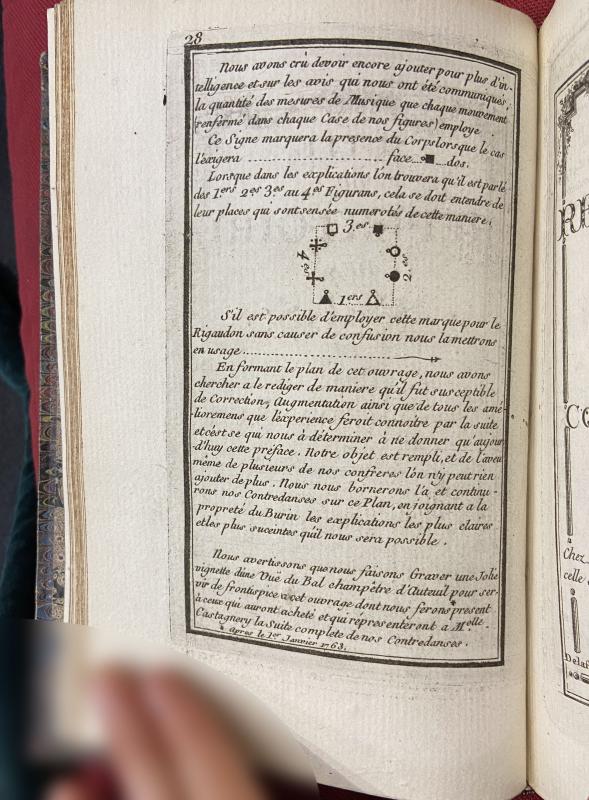 28
Nous avons crû devoir encore ajouter pour plus d'in-
telligence et sur les avis qui nous ont été communiqués
la quantité des mesures de Musique que chaque mouvement
(renfermé dans chaque Case de nos figures) employe
Ce Signe marquera la presence du Corps lorsque le cas
l'exigera ........ face ... dos.
Lorsque dans les explications l'on trouvera qu'il est parlé
des 1.ers 2.es 3.es au 4.es Figurans, cela se doit entendre de
leur places qui sont sensée numerotés de cette maniere.
3.es
4.es
2.es
1.ers
S'il est possible d'employer cette marque pour le
Rigaudon sans causer de confusion nous la mettrons
en usage ........
En formant le plan de cet ouvrage, nous avons
chercher a le rediger de maniere qu'il fut susceptible
de Correction, Augmentation ainsi que de tous les amé-
lioremens que l'éxperience feroit connoître par la suite
et cést se qui nous à déterminer à ne donner qu'aujour
d'huy cette préface. Notre objet est rempli, et de l'aveu
même de plusieurs de nos confreres l'on n'y peut rien
ajouter de plus. Nous nous bornerons l'a et continu-
rons nos Contredanses sur ce Plan, en joignant a la
propreté du Burin les explications les plus claires
et les plus suceintes qu'il nous sera possible.
Nous avertissons que nous faisons Graver une Jolie
vignette d'une Vuë du Bal champêtre d'Auteuil pour ser-
vir de frontispice a cet ouvrage dont nous ferons present
à ceux qui auront acheté et qui répresenteront a M.elle
Castagnery la Suite complete de nos Contredanses.
* Après le 1.er Janvier 1763.
Chez
celle
Delaf